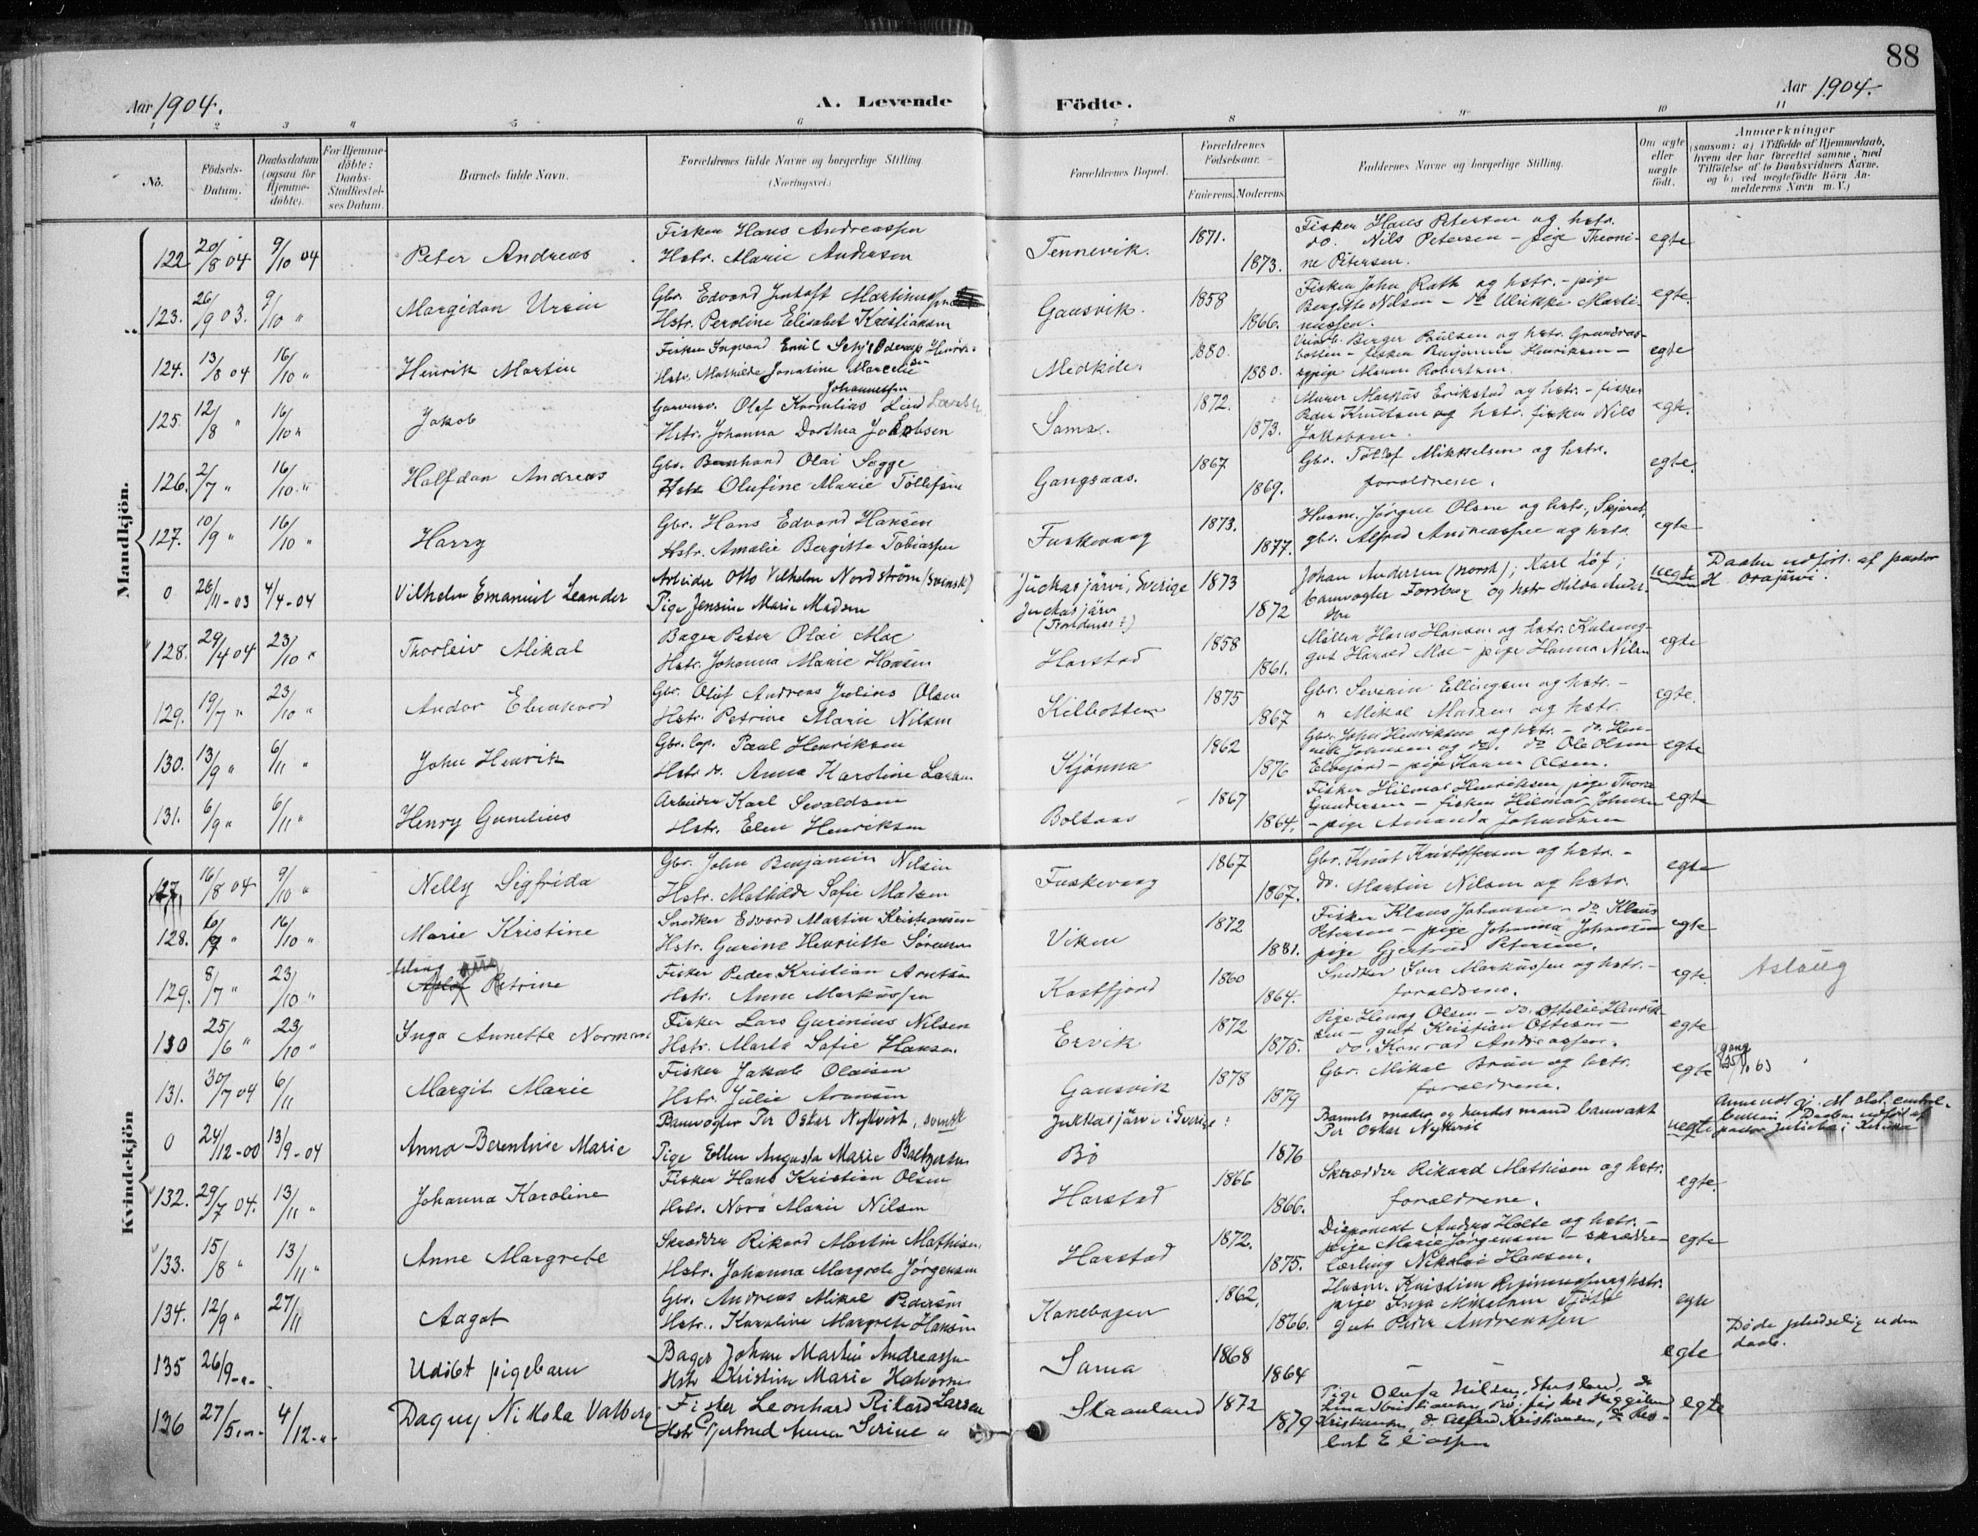 88
Aar 1904.
A. Levende Födte.
Aar 1904.
1 2 3 4 5 6 7 8 9 10 11
No.
Födsels-
Datum.
Daabsdatum
(ogsaa for
Hjemme-
döbte).
For Hjemme-
döbte:
Daabs-
Stadfæstel-
ses Datum.
Barnets fulde Navn.
Forældrenes fulde Navne og borgerlige Stilling
(Næringsvei.)
Forældrenes Bopæl.
Forældrenes
Födselsaar.
Faderens. Moderens.
Faddernes Navne og borgerlige Stilling.
Om ægte
eller
uægte
födt.
Anmærkninger
(saasom: a) i Tilfælde af Hjemmedaab,
hvem der har forrettet samme, med
Tilföielse af to Daabsvidners Navne.
og b) ved uægtefödte Börn An-
melderens Navn m. V.)
Mandkjön.
122 20/8 04 9/10 04 Peter Andreas Fisker Hans Andreassen Tennevik. 1871. Fisker Hans Petersen og hstr. egte
Hstr. Marie Andersen 1873. do. Nils Petersen - pige Theoni-
ne Petersen.
123. 26/9 03. 9/10 " Margidan Ursin Gbr. Edvard Martinussen Gausvik. 1858 Fisker John Rath og hstr. - pige egte
Hstr. Peroline Elisabet Kristiansen 1866. Bergitte Nilsen - do Ulrikke Marti-
nussen.
124. 13/8 04 16/10 " Henrik Martin Fisker Ingvard Emil Medkile. 1880. Berger Paulsen og hstr. egte
Hstr. Mathilde Jonatine 1880. fisker Benjamin Henriksen -
125. 12/8 " 16/10 " Jakob Olaf Kornelius Lind Johannessen Sama. 1872. Murer Markus Erikstad og hstr. - fisker egte.
Hstr. Johanna Dorthea Jakobsen 1873. Peder Knutsen og hstr. fisker Nils
Jakobsen.
126. 2/7 " 16/10 " Halfdan Andreas Gbr. Bernhard Olai Sagge Gangsaas. 1867 Gbr. Mikkelsen og hstr. egte.
Hstr Olufine Marie Tollefsen 1869. forældrene.
127. 10/9 " 16/10 " Harry Gbr. Hans Edvard Hansen Fuskevaag 1873. Husm. Jørgen Olsen og hstr. egte
Hstr. Amalie Bergitte Tobiassen 1877. gbr. Alfred Andreassen og hstr.
0 26/11-03 4/4-04 Vilhelm Emanuel Leander Arbeider Otto Vilhelm Nordström (svensk) Juckasjärvi, Sverige 1873 Johan Andersen (norsk); Karl Löf; uegte Daaben udført af pastor
Pige Jensine Marie Madsen Juckasjärvi 1872 banvogter Forsberg og hstr Hilda Ander- H. Orajärvi.
(Forældrenes:)
128. 29/4 04 23/10 " Thorleiv Mikal Bager Peter Olai Moe Harstad 1858 Møller Hans Hansen og hstr. egte
Hstr. Johanna Marie Hansen 1861. gut Harald Moe - pige Hanna Nilsen
129. 19/7 " 23/10 " Andor Eberhard Gbr. Oluf Andreas Julius Olsen Kilbotten 1875 Gbr. Severin Ellingsen og hstr. - egte.
Hstr. Petrine Marie Nilsen 1867 " Mikal Madsen og hstr.
130. 13/9 " 6/11 " John Henrik Gbr. Paul Henriksen Kjønna 1862 Gbr. John Henriksen og hstr. - do. Hen- egte
Hstr. Anna Karoline Larsen 1876 rik Johnsen og do. do Ole Olsen
Elvejord - pige Olsen.
131. 6/9 " 6/11 " Henry Gunelius Arbeider Karl Sivaldsen Boltaas 1867 Fisker Hilmar Henriksen, pige Thora egte
Hstr. Elen Henriksen 1864. Gundersen - fisker Hilmar Johnsen
- pige Amanda Johansen
Kvindekjön
127. 16/8 04 9/10 " Nelly Sigfrida Gbr. John Benjamin Nilsen Fuskevaag 1867 Gbr. Knut Kristoffersen og hstr. - egte
Hstr. Mathilde Sofie Madsen 1867. do. Martin Nilsen og hstr.
128. 6/7 " 16/10 " Marie Kristine Snedker Edvard Martin Kristiansen Viken 1872 Fisker Klaus Johansen - do Klaus egte
Hstr. Gurine Henriette Sørensen 1881. Petersen - pige Johanna Johansen
pige Gjertrud Petersen.
129. 8/7 " 23/10 " Petrine Fisker Peder Kristian Arntsen Kastfjord 1860 Snedker Iver Markussen og hstr. - egte. Aslaug
Hstr. Anne Markussen 1864. forældrene.
130 25/6 " 23/10 " Inga Annette Normann Fisker Lars Gurinius Nilsen Ervik 1872 Pige Olsen - do. Ottelie Henrik- egte
Hstr. Marta Sofie Hansen 1875. sen - gut Kristian Ottesen -
do. Konrad Andreassen.
131. 30/7 04 6/11 Margit Marie Fisker Jakob Olaisen Gausvik 1878 Gbr. Mikal Bruun og hstr. egte
Hstr. Julie Aronsen 1879 forældrene.
0 24/12-00 13/9-04 Anna Berentine Marie Banvogter Per Oskar Nykvist, svensk Jukkasjärvi i Sverige Barnets moder og hendes mand banvakt uegte
Pige Ellen Augusta Marie Baltzersen Bö 1876 Per Oskar Nykvist
132. 29/7 04. 13/11 " Johanna Karoline Fisker Hans Kristian Olsen Harstad 1866 Skrædder Rikard Mathisen og hstr. egte.
Hstr. Nora Marie Nilsen 1866. forældrene.
133. 15/8 " 13/11 " Anne Margrete Skrædder Rikard Martin Mathisen Harstad 1872. Disponent Anders Holte og hstr. - egte
Hstr. Johanna Margrete Jørgensen 1875. pige Marie Jørgensen - skrædder-
lærling Nikolai Hansen.
134. 12/9 " 27/11 Aagot Gbr. Andreas Mikal Pedersen Kanebogen 1862. Husm. Kristian og hstr. egte
Hstr. Karoline Margrete Hansen 1866. pige Inga Mikalsen
gut Peder Andreassen
135 26/9-"- Udöbt pigebarn Bager Johan Martin Andreassen Sama 1868 - egte Døde pludselig uden
Hstr Christine Marie Halvorsen 1864 daab.
136 27/5-"- 4/12-"- Dagny Nikola Valborg Fisker Leonhard Rikard Larsen Skaanland 1872 Pige Olufa Nilsen, egte
Hstr Gjertrud Anna Serine " 1879 Kristiansen, do Alfred Kristiansen,
Eliassen